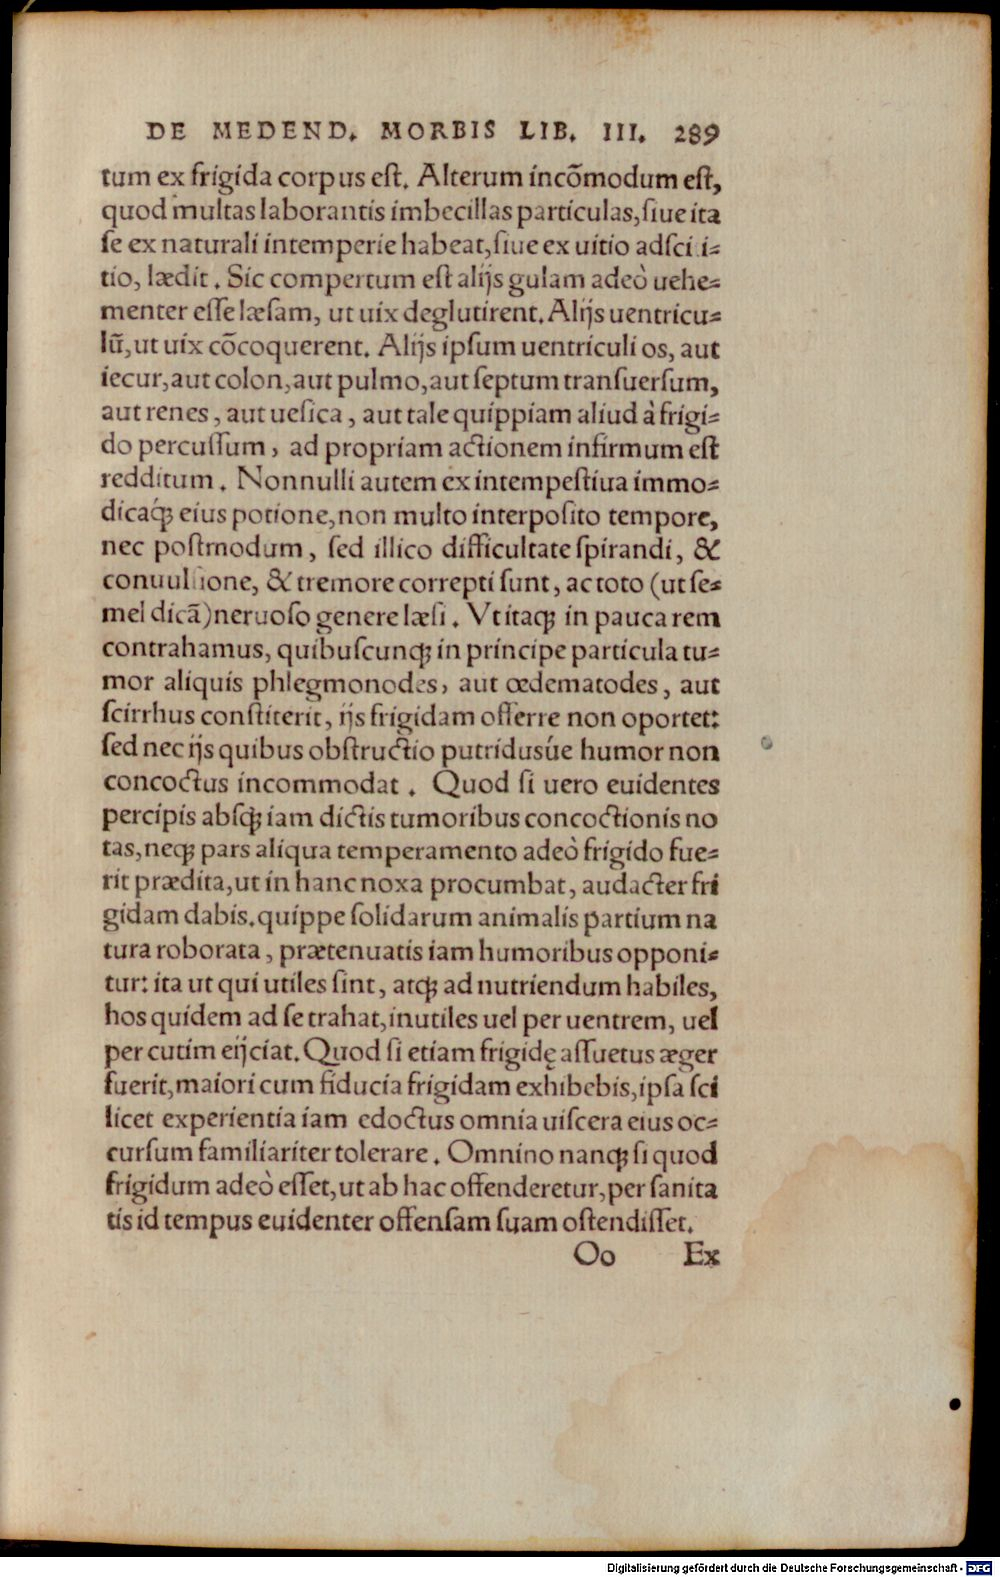 DE MEDEND. MORBIS LIB. III. 289
tum ex frigida corpus est. Alterum incõmodum est,
quod multas laborantis imbecillas particulas, siue ita
se ex naturali intemperie habeat, siue ex uitio adsci i-
tio, lædit. Sic compertum est alijs gulam adeò uehe-
menter esse læsam, ut uix deglutirent. Alijs uentricu-
lũ, ut uix cõcoquerent. Alijs ipsum uentriculi os, aut
iecur, aut colon, aut pulmo, aut septum transuersum,
aut renes, aut uesica, aut tale quippiam aliud à frigi-
do percussum, ad propriam actionem infirmum est
redditum. Nonnulli autem ex intempestiua immo-
dicaq́ꝫ eius potione, non multo interposito tempore,
nec postmodum, sed illico difficultate spirandi, &
conuulsione, & tremore correpti sunt, ac toto (ut se-
mel dicã) neruoso genere læsi. Vt itaqꝫ in pauca rem
contrahamus, quibuscunqꝫ in principe particula tu-
mor aliquis phlegmonodes, aut œdematodes, aut
scirrhus constiterit, ijs frigidam offerre non oportet:
sed nec ijs quibus obstructio putridusúe humor non
concoctus incommodat. Quod si uero euidentes
percipis absqꝫ iam dictis tumoribus concoctionis no
tas, neqꝫ pars aliqua temperamento adeò frigido fue-
rit prædita, ut in hanc noxa procumbat, audacter fri
gidam dabis. quippe solidarum animalis partium na
tura roborata, prætenuatis iam humoribus opponi-
tur: ita ut qui utiles sint, atqꝫ ad nutriendum habiles,
hos quidem ad se trahat, inutiles uel per uentrem, uel
per cutim eijciat. Quod si etiam frigidę assuetus æger
fuerit, maiori cum fiducia frigidam exhibebis, ipsa sci
licet experientia iam edoctus omnia uiscera eius oc-
cursum familiariter tolerare. Omnino nanqꝫ si quod
frigidum adeò esset, ut ab hac offenderetur, per sanita
tis id tempus euidenter offensam suam ostendisset.
Oo Ex
Digitalisierung gefördert durch die Deutsche Forschungsgemeinschaft - DFG